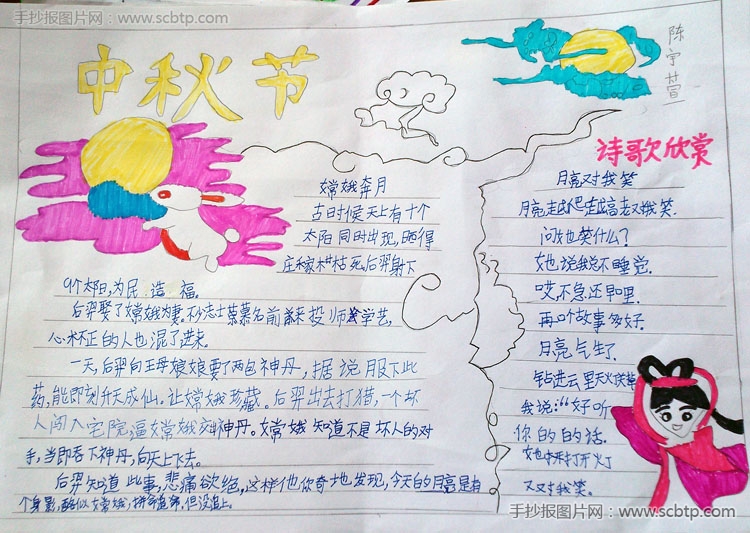 手抄报图片网：www.scbtp.com
中秋节
陈宇萱
嫦娥奔月
古时候天上有十个
太阳同时出现，晒得
庄稼枯死后羿射下
9个太阳，为民造福。
后羿娶了嫦娥为妻。不少志士慕名前来投师学艺，
心术不正的人也混了进来。
一天，后羿向王母娘娘要了两包神丹，据说服下此
药，能即刻升天成仙。让嫦娥珍藏。后羿出去打猎，一个坏
人闯入宅院逼嫦娥交神丹。嫦娥知道不是坏人的对
手，当即吞下神丹，向天上飞去。
后羿知道此事，悲痛欲绝，这样他惊奇地发现，今天的月亮是有
个身影，酷似嫦娥，拼命追，但没追上。
诗歌欣赏
月亮对我笑
月亮走我
问她笑什么？
她说我说不睡觉．
哎，不急还早哩．
再 个故事多好．
月亮气生了．
钻进云里灭火
我说：“好听
你的的话．
她 打开灯
又对我笑．
手抄报图片网：www.scbtp.com